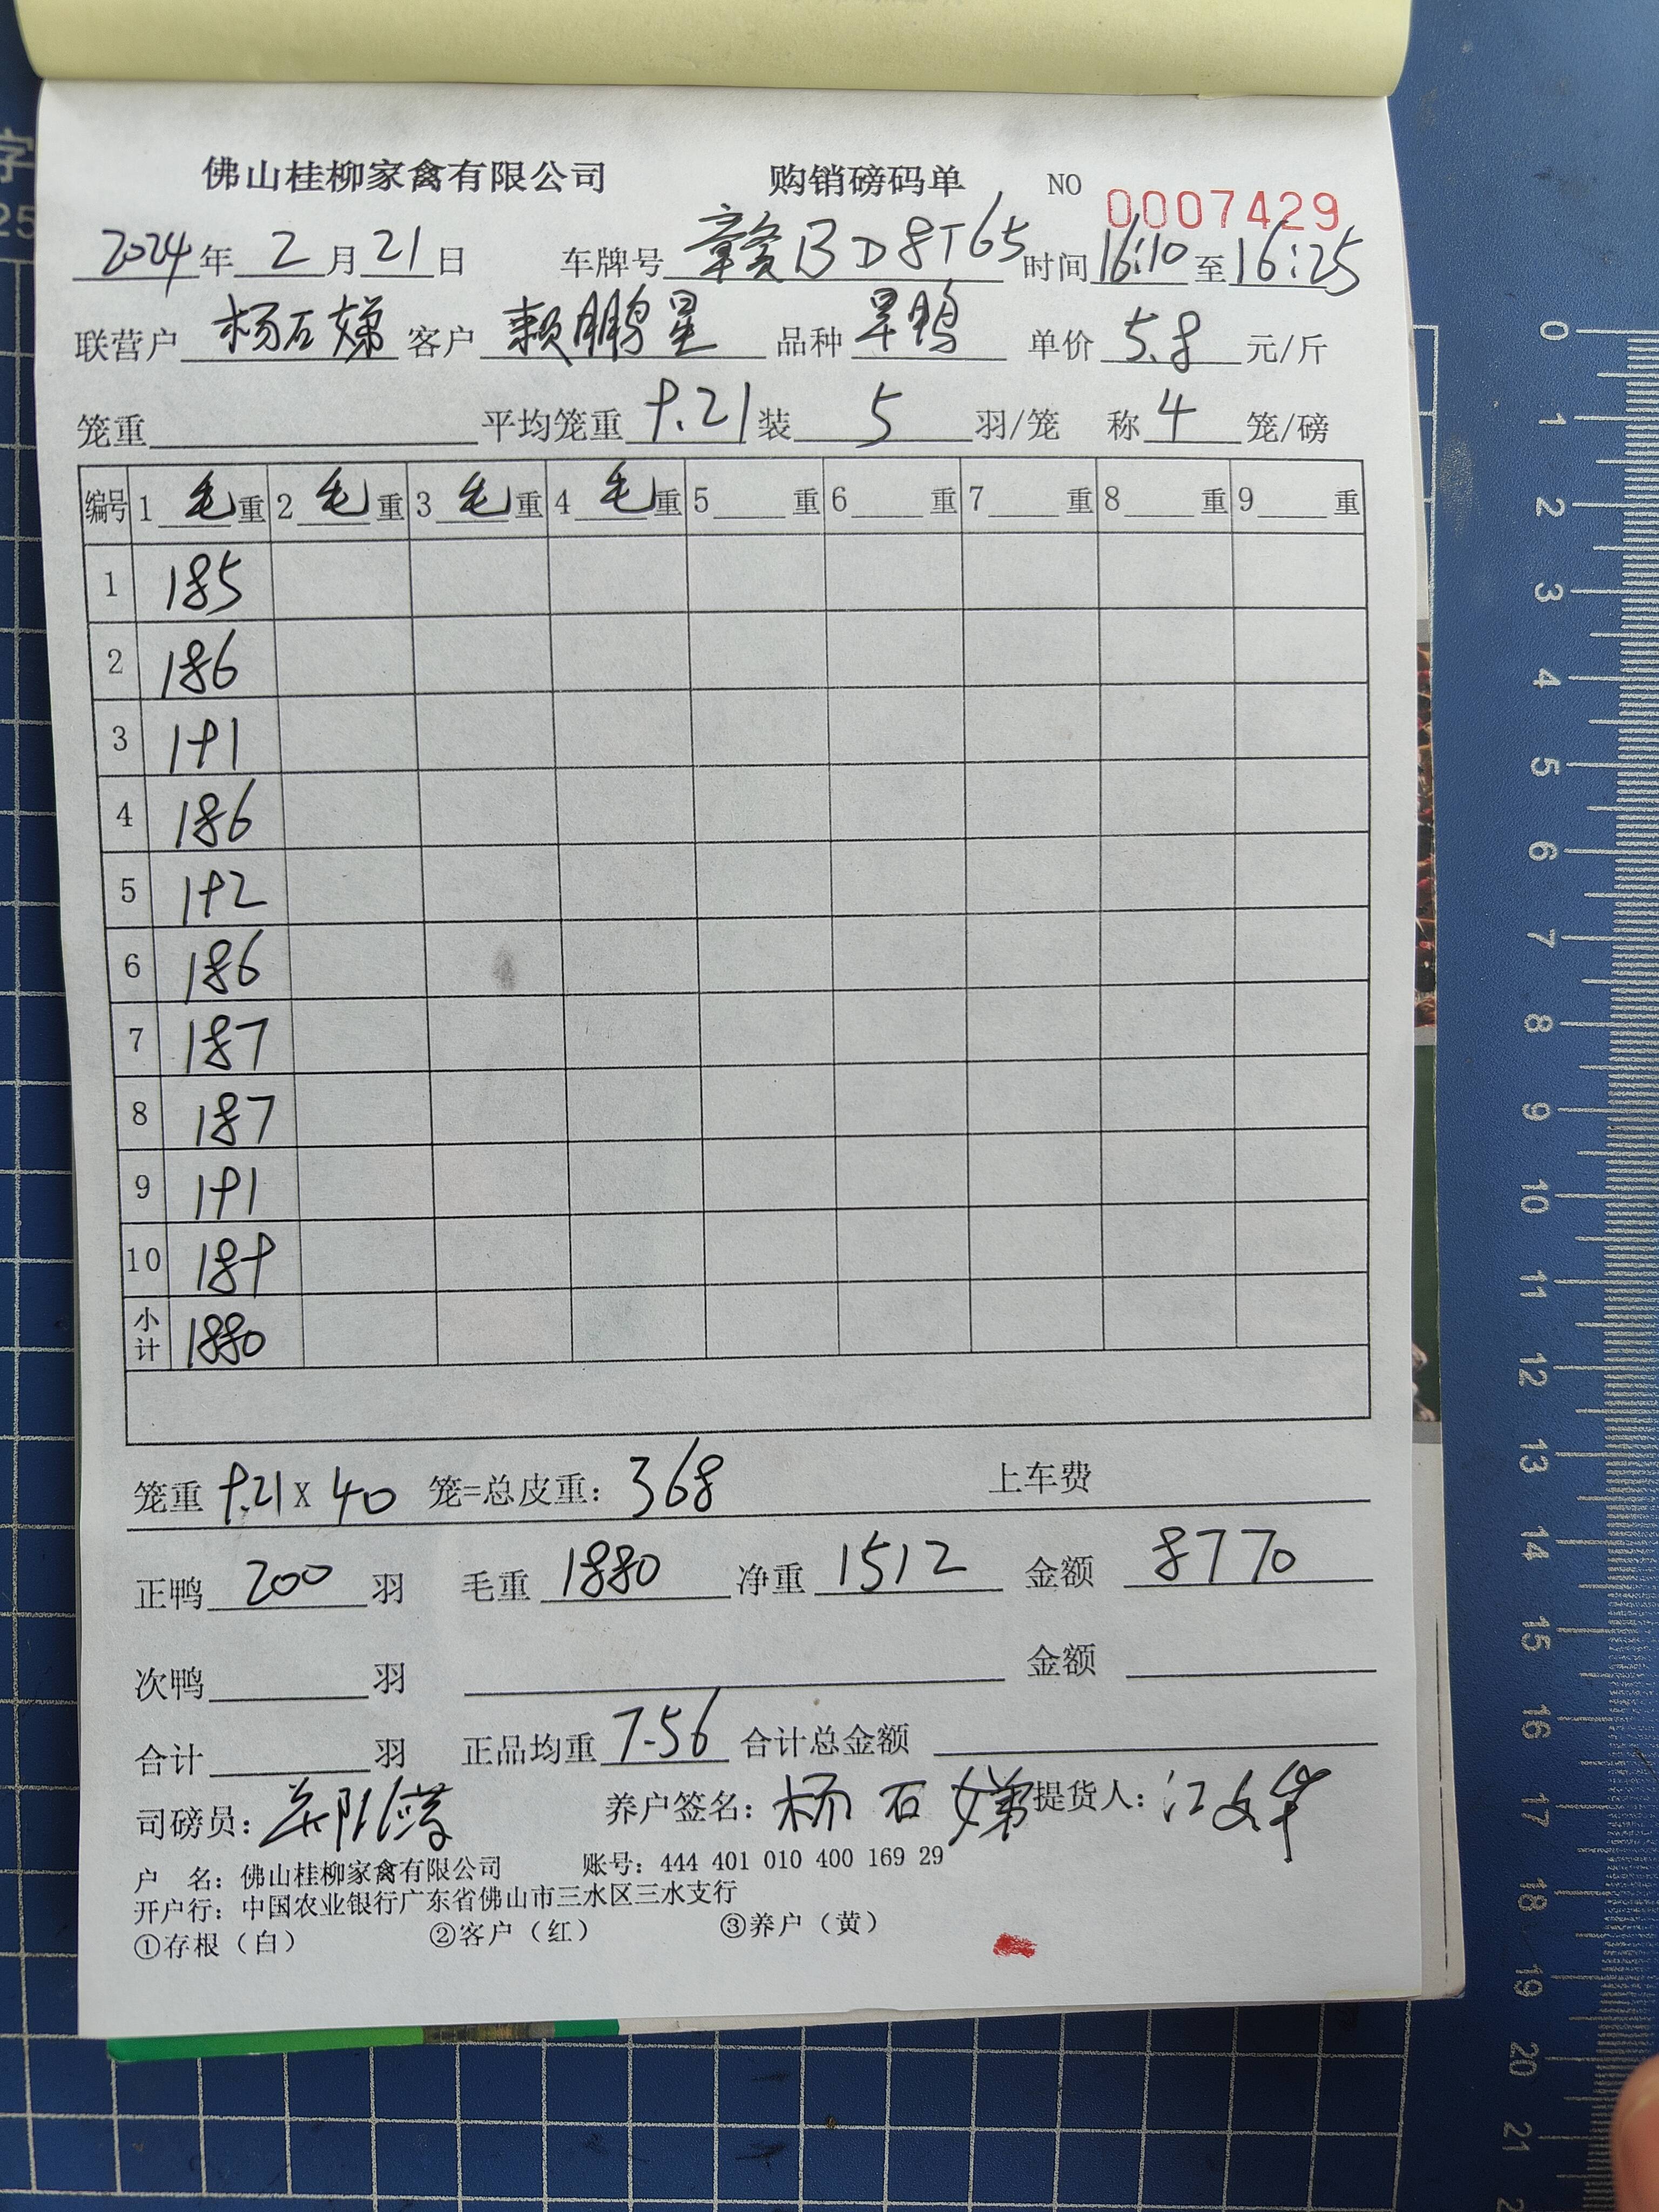 佛山桂柳家禽有限公司 购销磅码单 NO 0007429
2024年2月21日 车牌号 赣BD8T65 时间 16:10 至 16:25
联营户 杨石娣 客户 赖鹏星 品种 旱鸭 单价 5.8 元/斤
笼重 平均笼重 9.21 装 5 羽/笼 称 4 笼/磅
编号 1 毛重 2 毛重 3 毛重 4 毛重 5 重 6 重 7 重 8 重 9 重
1 185
2 186
3 191
4 186
5 192
6 186
7 187
8 187
9 191
10 189
小计 1880
笼重 9.21 X 40 笼=总皮重: 368 上车费
正鸭 200 羽 毛重 1880 净重 1512 金额 8770
次鸭 羽 金额
合计 羽 正品均重 7.56 合计总金额
司磅员: 养户签名: 杨石娣 提货人: 江文华
户 名: 佛山桂柳家禽有限公司 账号: 444 401 010 400 169 29
开户行: 中国农业银行广东省佛山市三水区三水支行
①存根（白） ②客户（红） ③养户（黄）
字
25
0
1
2
3
4
5
6
7
8
9
10
11
12
13
14
15
16
17
18
19
20
21